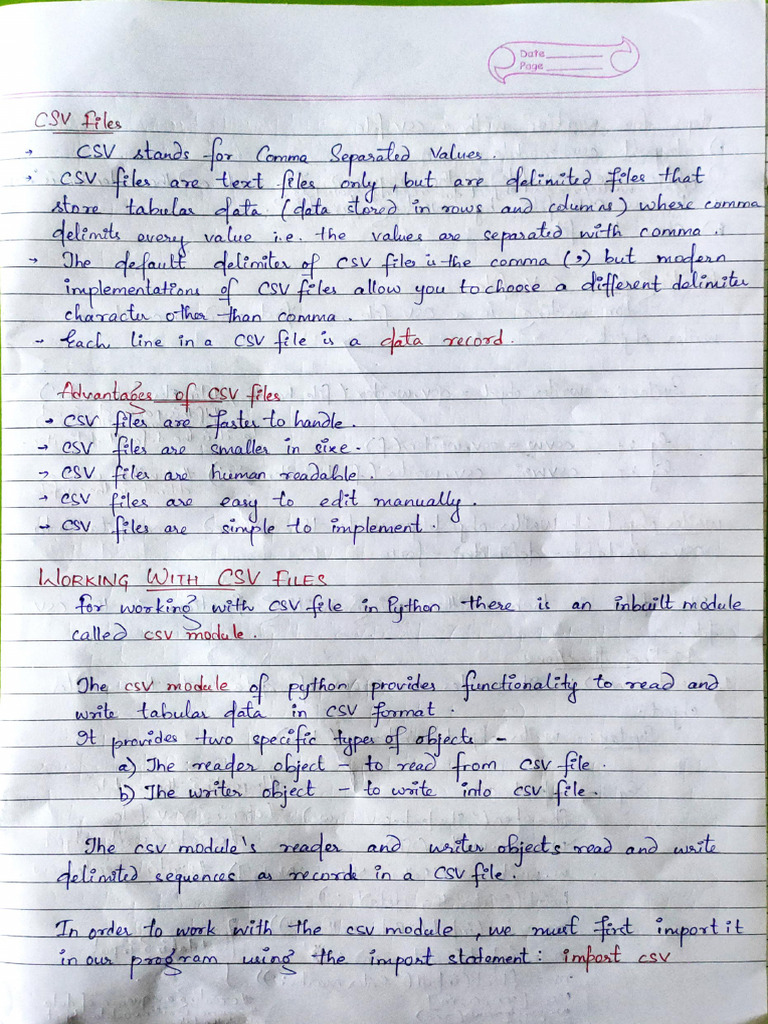 Date
Page
CSV Files
→ CSV stands for Comma Separated Values.
→ CSV files are text files only, but are delimited files that
store tabular data (data stored in rows and columns) where comma
delimits every value i.e. the values are separated with comma.
→ The default delimiter of CSV files is the comma (,) but modern
implementations of CSV files allow you to choose a different delimiter
character other than comma.
→ Each line in a CSV file is a data record.
Advantages of CSV files
→ CSV files are faster to handle.
→ CSV files are smaller in size.
→ CSV files are human readable.
→ CSV files are easy to edit manually.
→ CSV files are simple to implement.
WORKING WITH CSV FILES
For working with CSV file in Python there is an inbuilt module
called csv module.
The csv module of python provides functionality to read and
write tabular data in CSV format.
It provides two specific types of objects -
a) The reader object - to read from CSV file.
b) The writer object - to write into CSV file.
The csv module's reader and writer objects read and write
delimited sequences as records in a CSV file.
In order to work with the csv module, we must first import it
in our program using the import statement: import csv